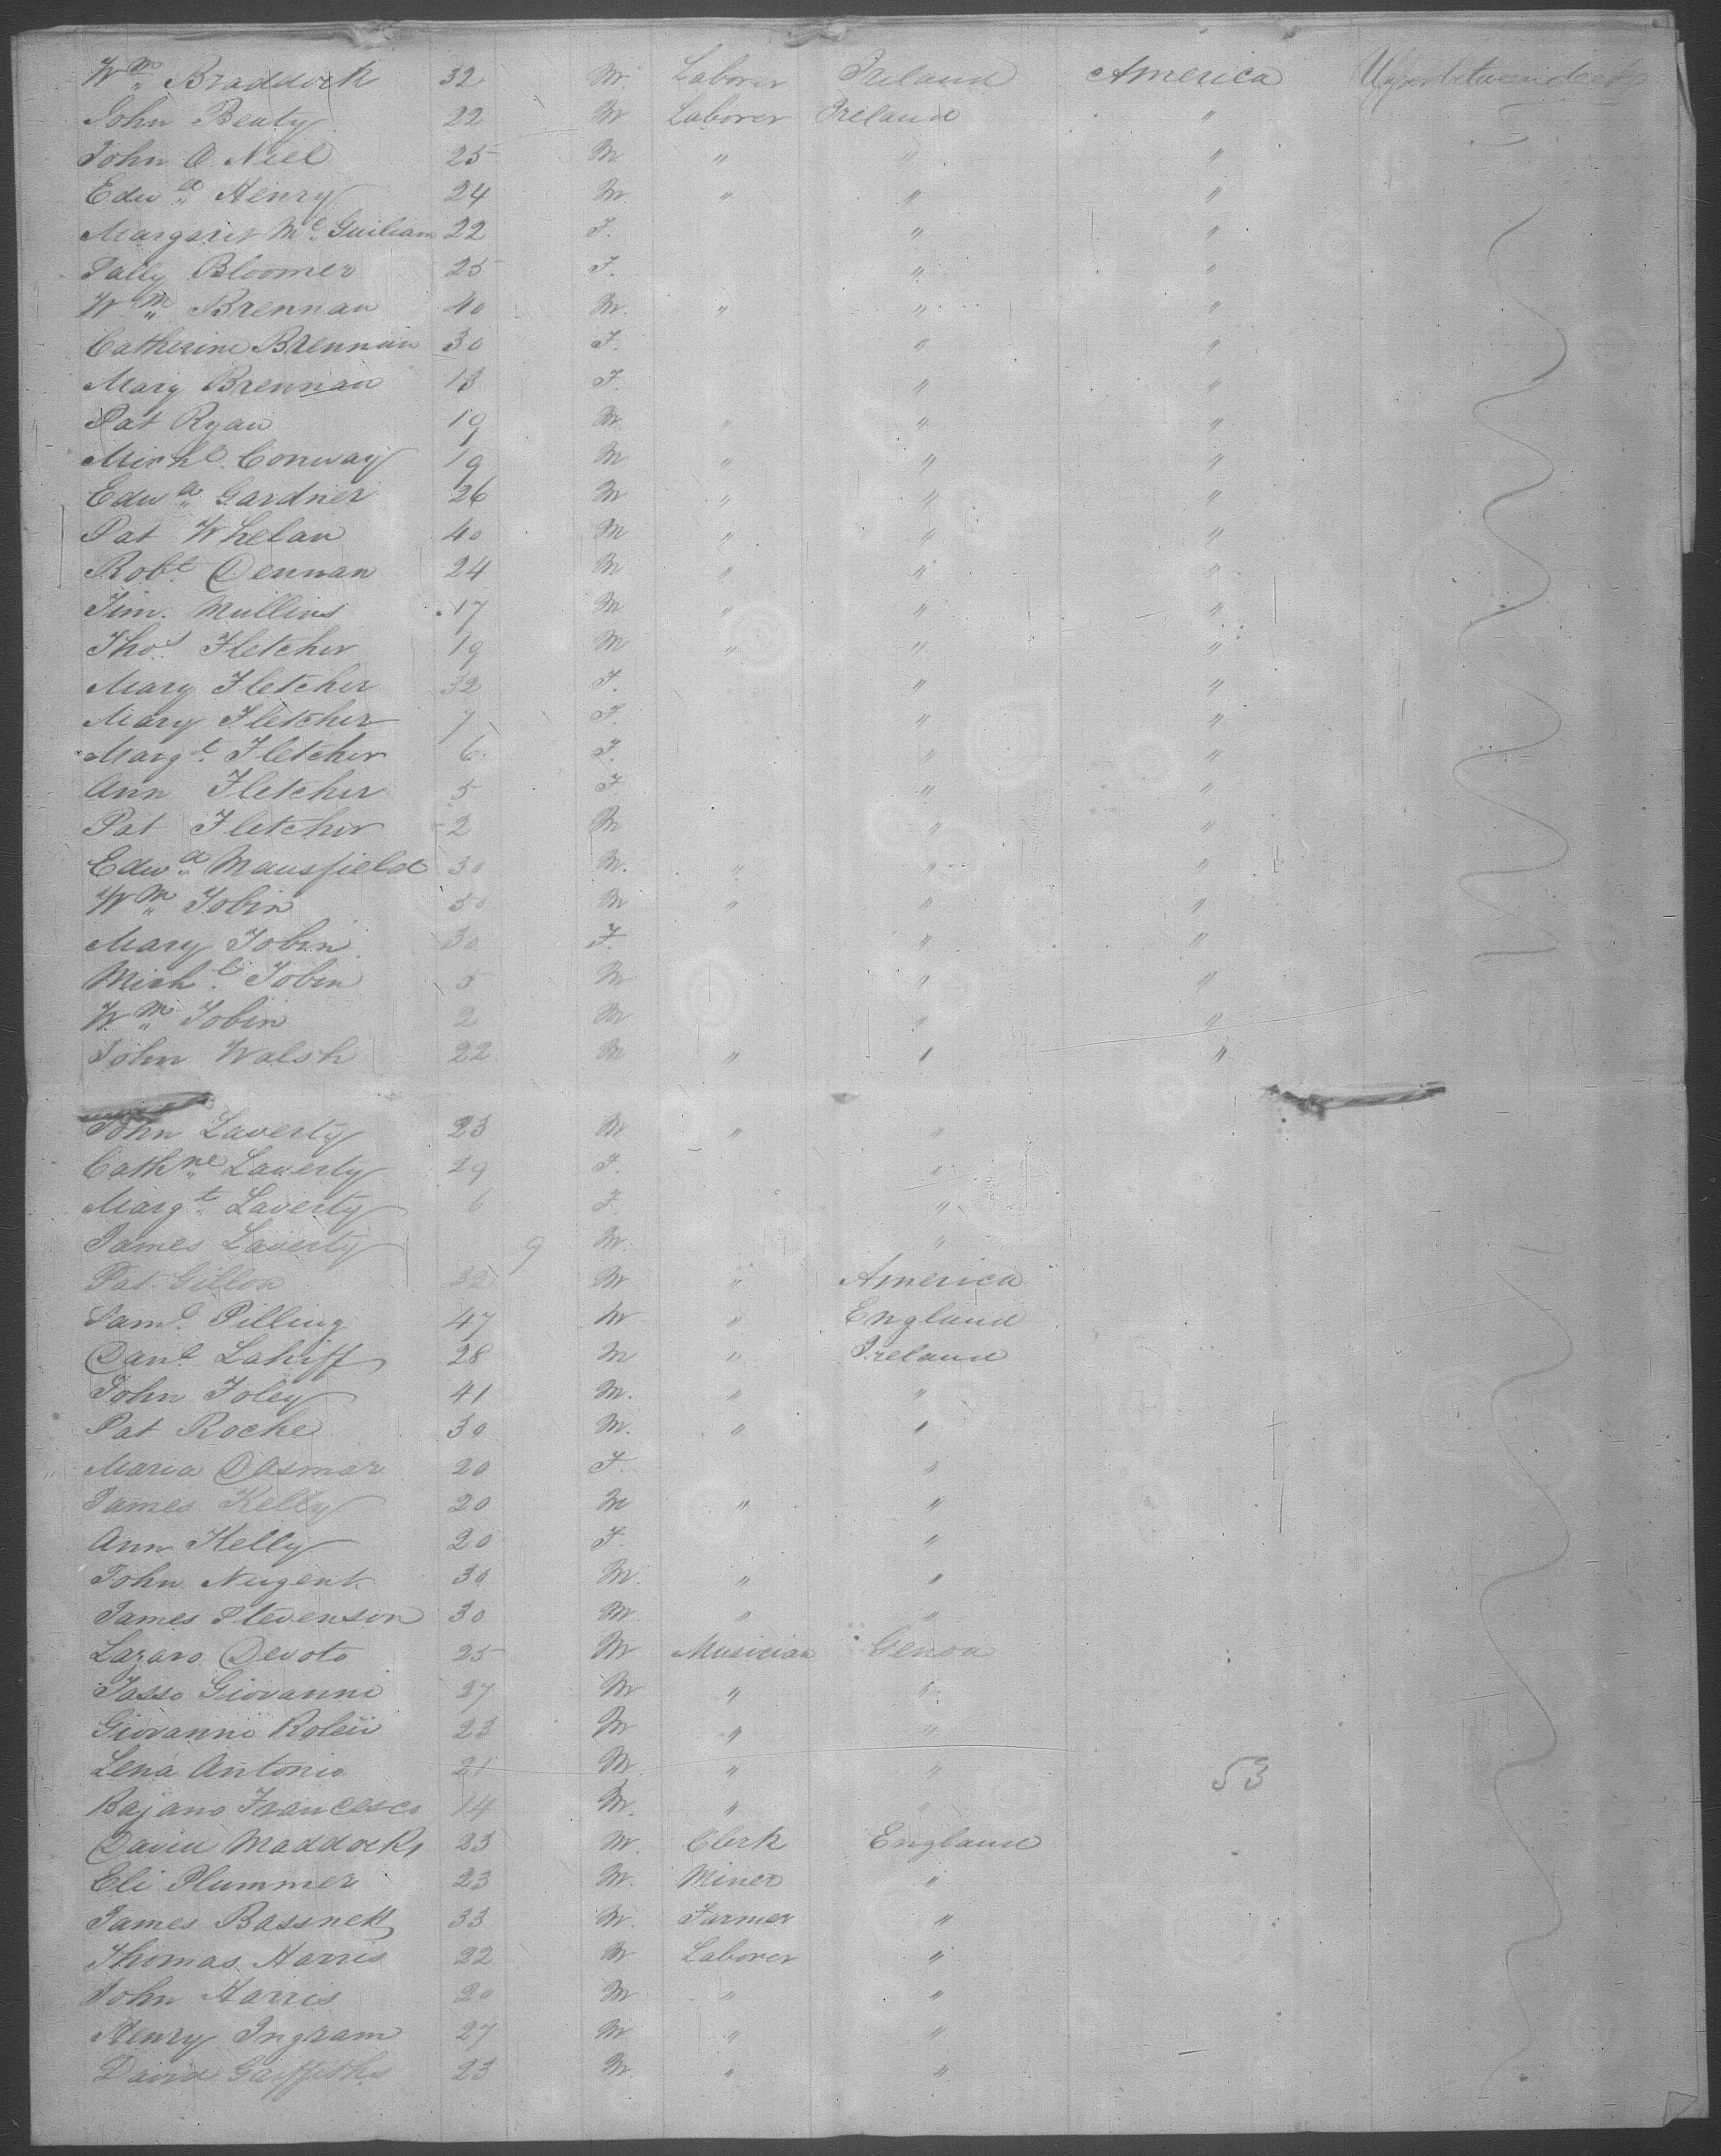 Wm Braddock 32 M Laborer Ireland America Upper between decks
John Beaty 22 M Laborer Ireland "
John O Niel 25 M " " "
Edwd Henry 24 M " " "
Margaret Mc Guiliam 22 F. " "
Sally Bloomer 25 F. " "
Wm Brennan 40 M. " " "
Catherine Brennan 30 F. " "
Mary Brennan 13 F. " "
Pat Ryan 19 M. " " "
Michl Conway 19 M " " "
Edwd Gardner 26 M " " "
Pat Whelan 40 M " " "
Robt Dennan 24 M " " "
Tim. Mullins 17 M " " "
Thos Fletcher 19 M " " "
Mary Fletcher 32 F. " "
Mary Fletcher 7 F. " "
Margt Fletcher 6 F. " "
Ann Fletcher 5 F " "
Pat Fletcher 2 M " "
Edwd Mansfield 30 M. " " "
Wm Tobin 50 M " " "
Mary Tobin 30 F. " "
Michl Tobin 5 M " "
Wm Tobin 2 M " "
John Walsh 22 M " " "
John Laverty 23 M " "
Cathne Laverty 29 F. "
Margt Laverty 6 F. "
James Laverty 9 M. "
Pat Gillon 32 M " America
Saml Pilling 47 M " England
Danl Lahiff 28 M " Ireland
John Foley 41 M. " "
Pat Roche 30 M. " "
Maria Dasmar 20 F. "
James Kelly 20 M " "
Ann Kelly 20 F. "
John Nugent 30 M. " "
James Stevenson 30 M. " "
Lazaro Devoto 25 M Musician Genoa
Tasso Giovanni 27 M " "
Giovanni 23 M " "
Lena Antonio 21 M " " 53
Bajano Francesco 14 M. " "
David Maddocks 23 M. Clerk England
Eli Plummer 23 M. Miner "
James Bassnett 33 M. Farmer "
Thomas Harris 22 M Laborer "
John Harris 20 M " "
Henry Ingram 27 M " "
David Griffiths 23 M. " "